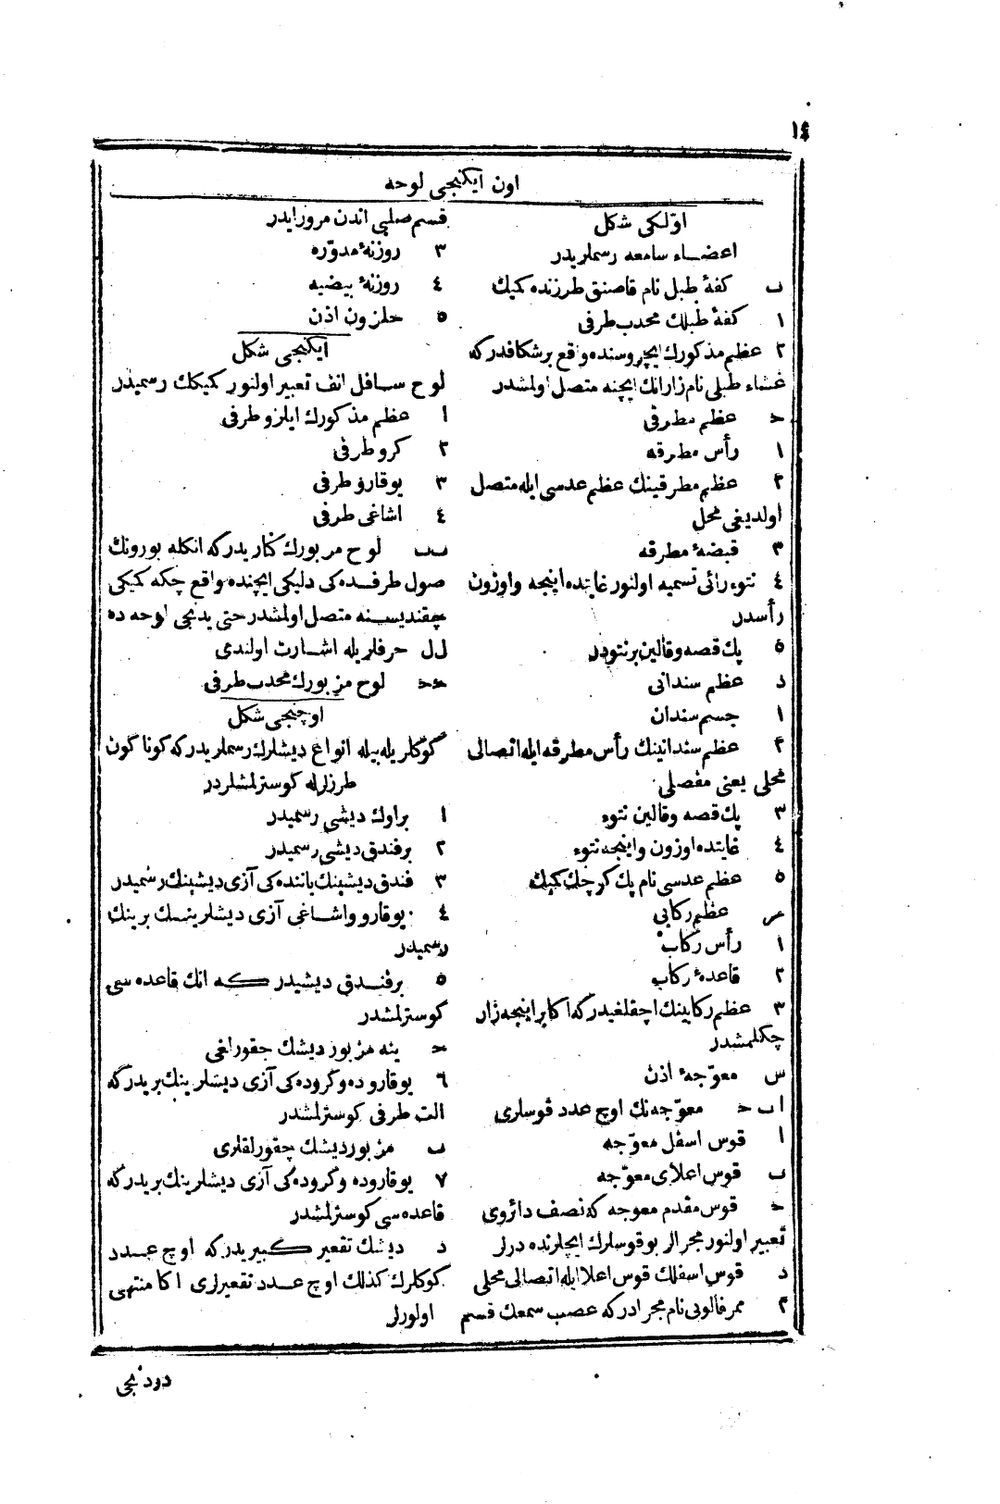 ١٤
اون ایکنجی لوحه
اوّلکی شکل
اعضاء سامعه رسملریدر
ب کفهٔ طبل نام قاصنق طرزنده کمیك
١ کفهٔ طبلك محدب طرفی
٢ عظم مذکورك ایچروسنده واقع برشکافدرکه
غشاء طبلی نام زارانك ایچنه متصل اولمشدر
ح عظم مطرقی
١ رأس مطرقه
٢ عظم مطرقینك عظم عدسی ایله متصل
اولدیغی محل
٣ قبضهٔ مطرقه
٤ نتوء رائی تسمیه اولنور غایتده اینجه واوزون
رأسدر
٥ پك قصه وقالین برنتودر
د عظم سندانی
١ جسم سندان
٢ عظم سندانینك رأس مطرقه ایله اتصالی
محلی یعنی مفصلی
٣ پك قصه وقالین نتوء
٤ غایتده اوزون واینجه نتوء
٥ عظم عدسی نام پك کوچك کمیك
عظم رکابی
١ رأس رکاب
٢ قاعدهٔ رکاب
٣ عظم رکابینك اچقلغیدرکه اکا براینجه زار
چکلمشدر
س معوّجهٔ اذن
ا ب ح معوّجه‌نك اوچ عدد قوسلری
ا قوس اسفل معوّجه
ب قوس اعلای معوّجه
ح قوس مقدم معوجه که نصف دائروی
تعبیر اولنور مجرالر بوقوسلرك ایچلرنده درلر
د قوس اسفلك قوس اعلا ایله اتصالی محلی
٢ ممر فالوبی نام مجرادرکه عصب سمعك قسم
قسم صلبی اندن مرور ایدر
٣ روزنهٔ مدوّره
٤ روزنهٔ بیضیه
٥ حلزون اذن
ایکنجی شکل
لوح سافل انف تعبیر اولنور کمیکك رسمیدر
١ عظم مذکورك ایلرو طرفی
٢ کرو طرفی
٣ یوقارو طرفی
٤ اشاغی طرفی
ب ب لوح مزبورك کناریدرکه انکله بورونك
صول طرفنده کی دلیکی ایچنده واقع چکه کمیکی
چقندیسنه متصل اولمشدر حتی یدنجی لوحه ده
ل ل حرفلریله اشارت اولندی
ح ح لوح مزبورك محدب طرفی
اوچنجی شکل
کوکلریله بیله انواع دیشلرك رسملریدرکه کوناکون
طرزلرله کوسترلمشلردر
١ براوك دیشی رسمیدر
٢ برفندق دیشی رسمیدر
٣ فندق دیشینك یاننده کی آزی دیشینك رسمیدر
٤ یوقارو واشاغی آزی دیشلرینك برینك
رسمیدر
٥ برفندق دیشیدر که انك قاعده سی
کوسترلمشدر
ح ینه مزبور دیشك جقوراغی
٦ یوقاروده وکروده کی آزی دیشلرینك بریدرکه
الت طرفی کوسترلمشدر
ب مزبور دیشك چقورلقلری
٧ یوقاروده وکروده کی آزی دیشلرینك بریدرکه
قاعده سی کوسترلمشدر
د دیشك تقعیر کبیریدرکه اوچ عدد
کوکلرك کذلك اوچ عدد تقعیرلری اکا منتهی
اولورلر
دردنجی